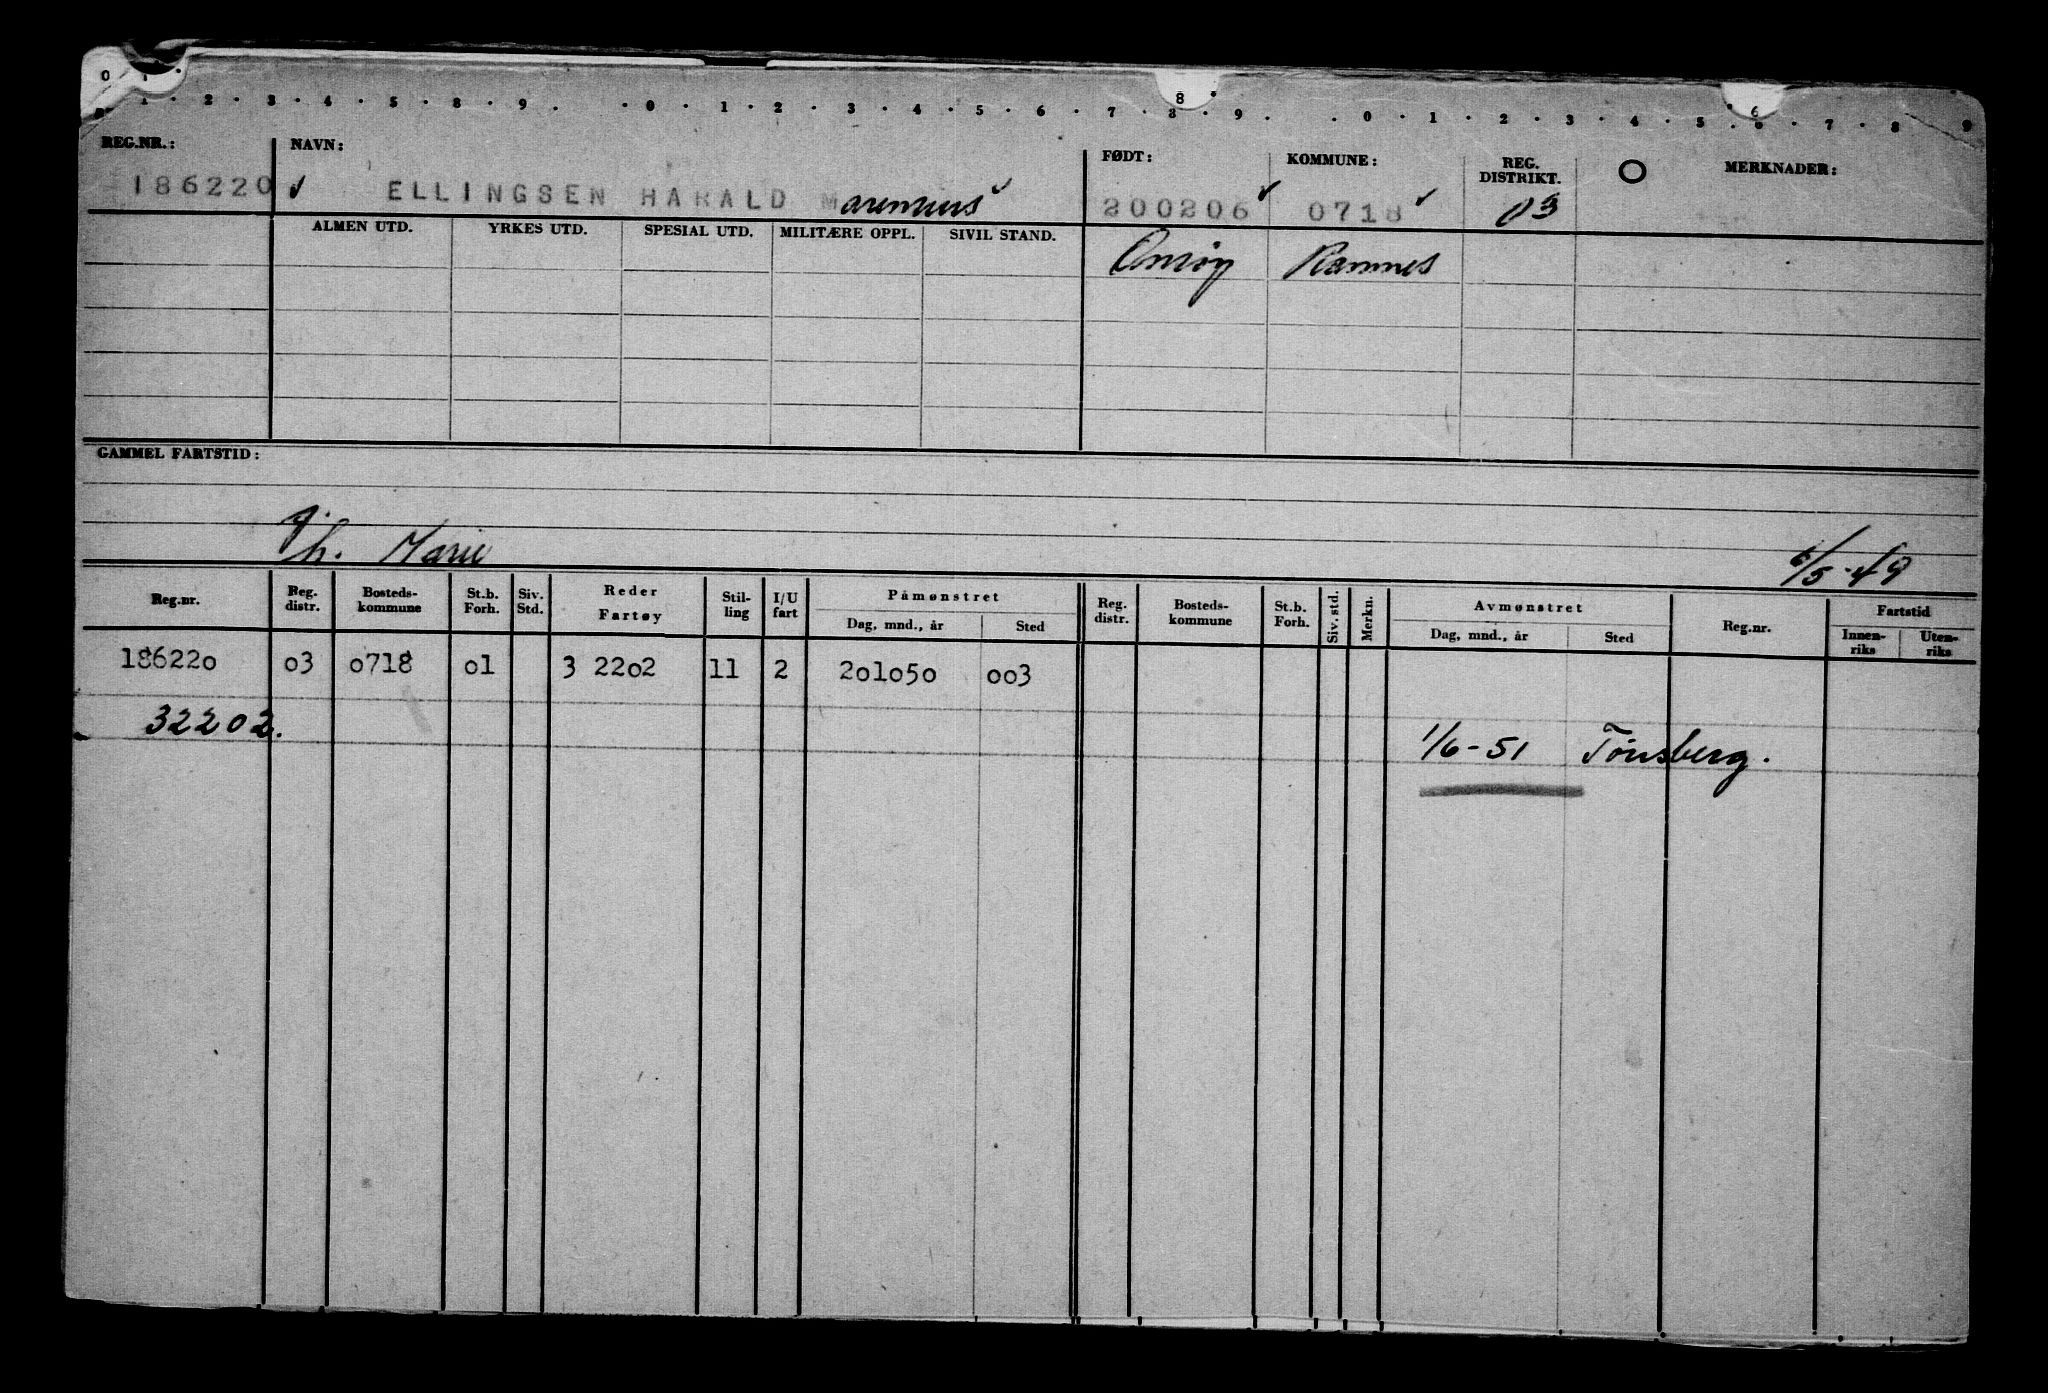 0 1 .
1 . 2 . 3 . 4 . 5 . 8 . 9 . . 0 . 1 . 2 . 3 . 4 . 5 . 6 . 7 . 8 . 9 . . 0 . 1 . 2 . 3 . 4 . 5 . 6 . 7 . 8 . 9
8 6
REG.NR.: NAVN: FØDT: KOMMUNE: REG. DISTRIKT. O MERKNADER:
186220 ELLINGSEN HARALD Marenius 200206 0718 03
ALMEN UTD. YRKES UTD. SPESIAL UTD. MILITÆRE OPPL. SIVIL STAND. Onsøy Ramnes
GAMMEL FARTSTID:
Marie 6/5-49
Reg.nr. Reg. distr. Bosteds-kommune St.b. Forh. Siv. Std. Reder Fartøy Stil-ling I/U fart Påmønstret Dag, mnd., år Sted Reg. distr. Bosteds-kommune St.b. Forh. Siv. std. Merkn. Avmønstret Dag, mnd., år Sted Reg.nr. Fartstid Innen-riks Uten-riks
186220 03 0718 01 3 2202 11 2 201050 003
32202. 1/6-51 Tønsberg.